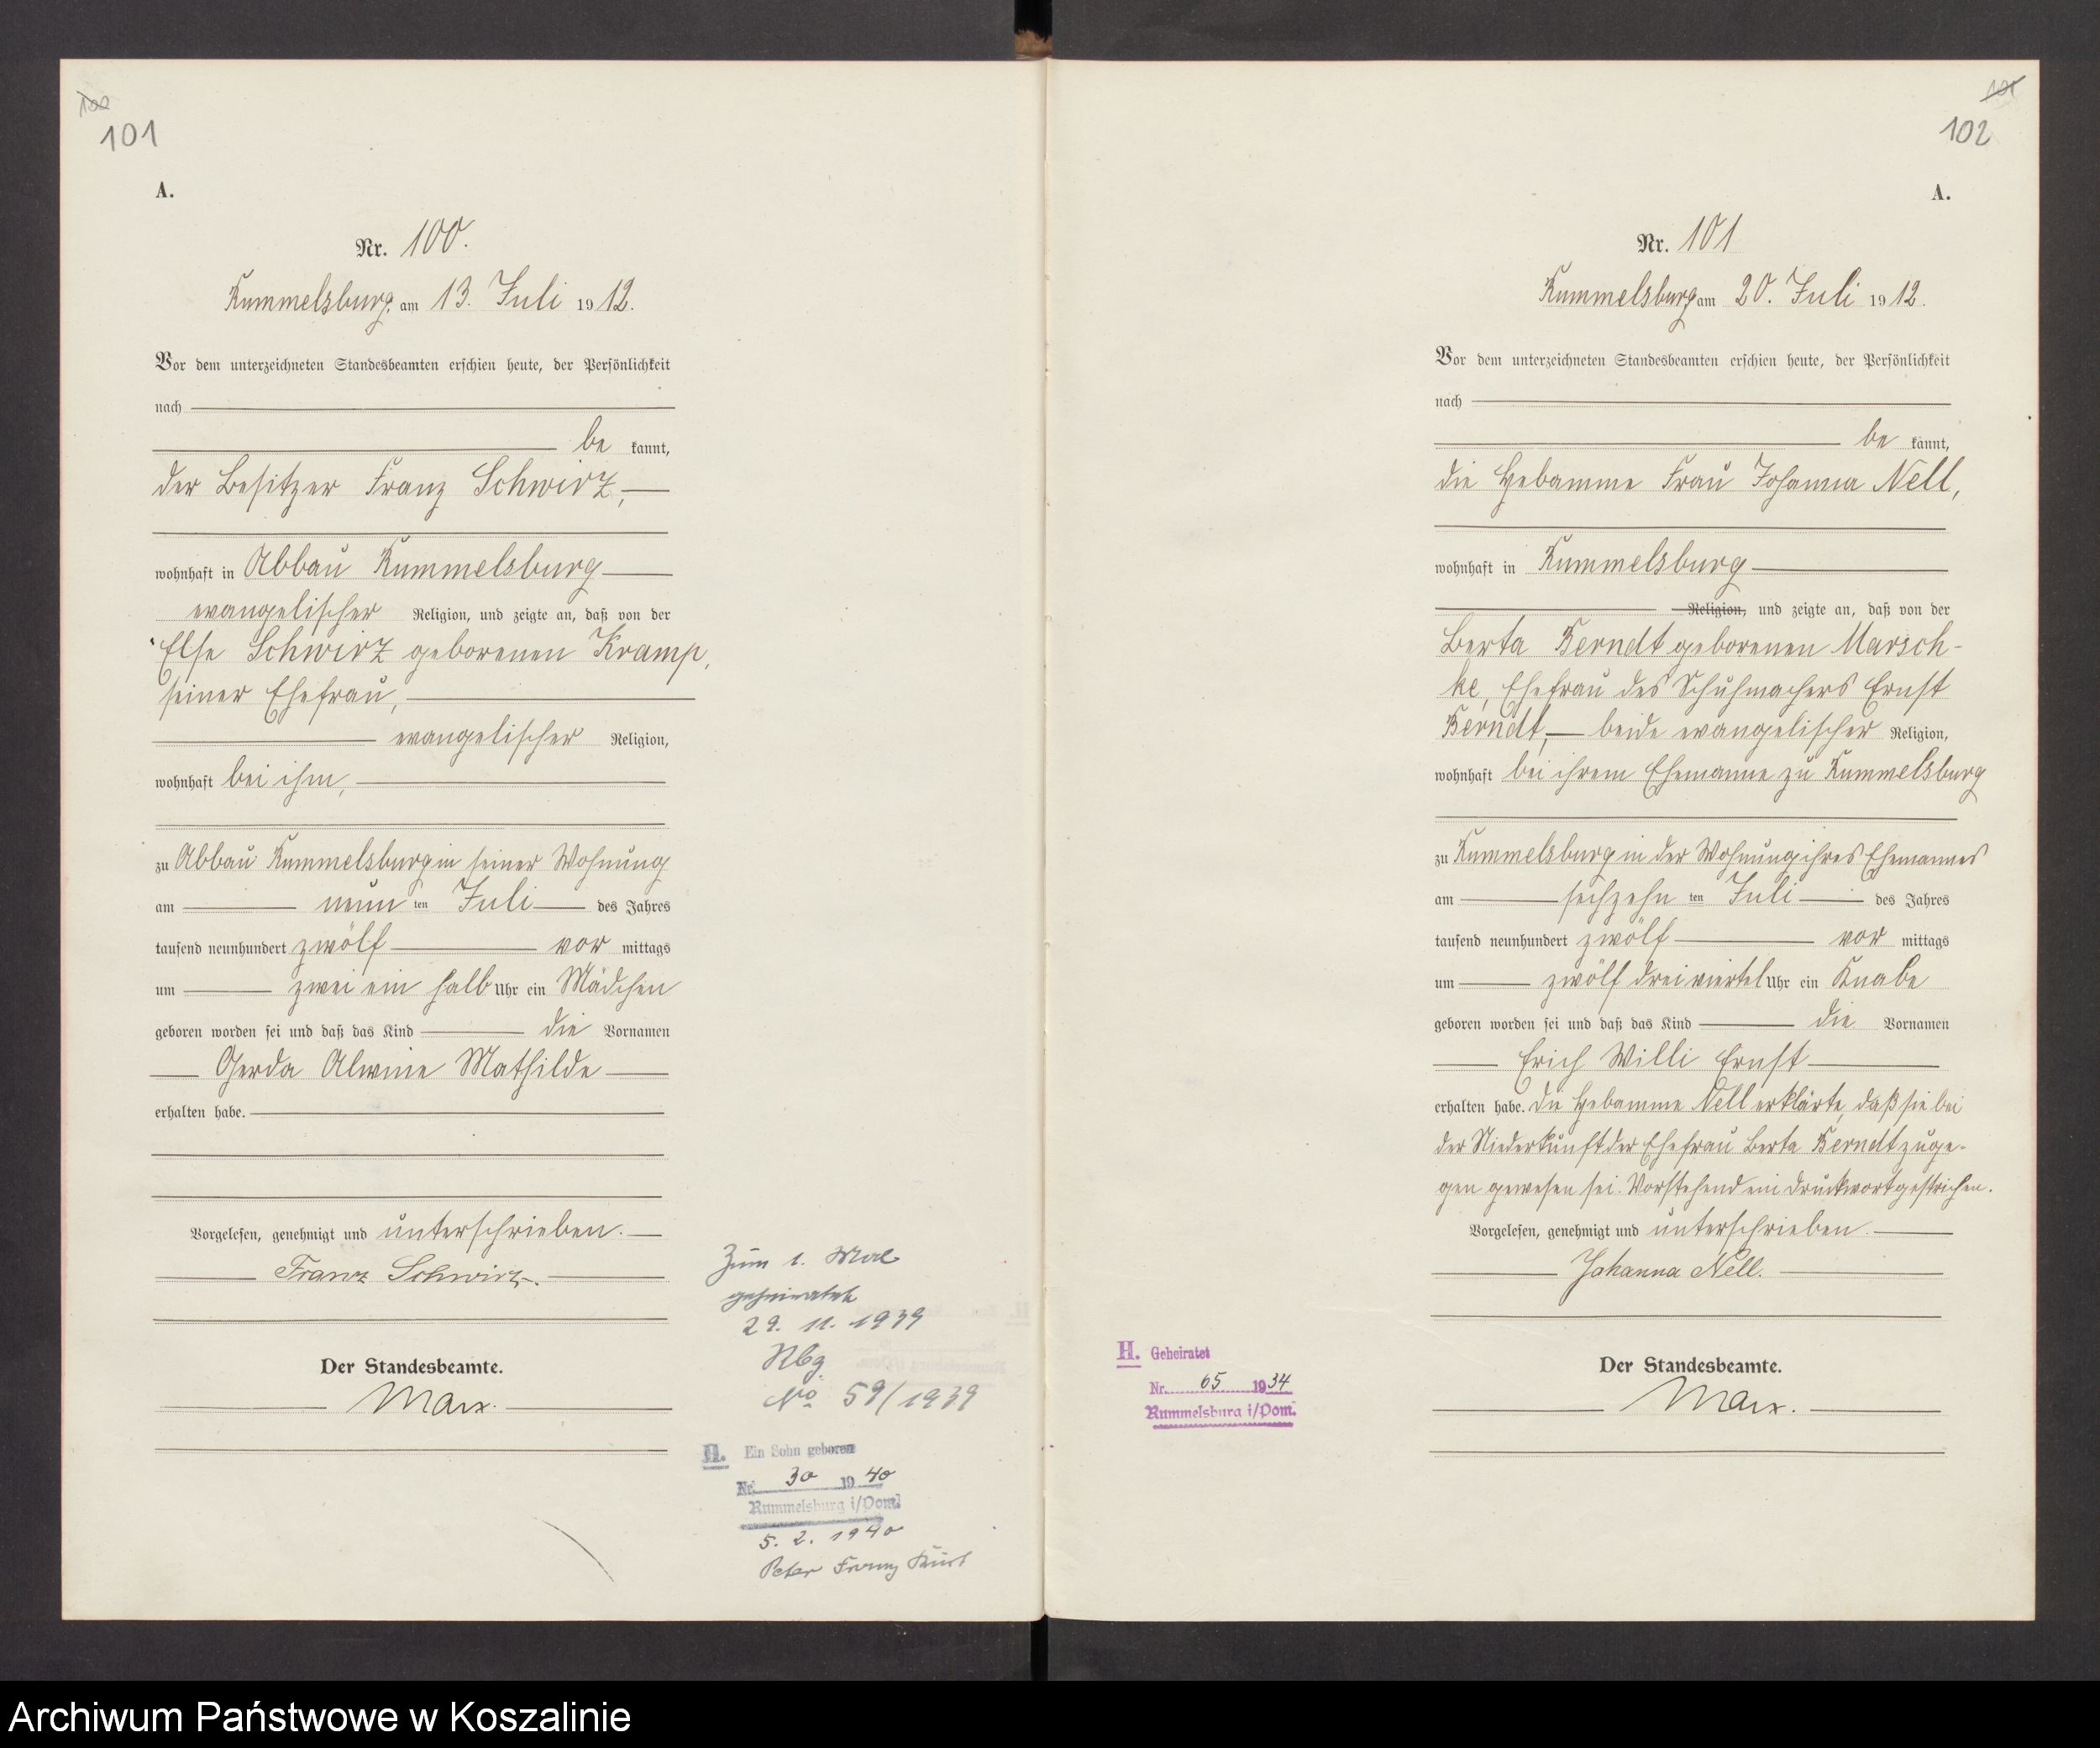 100
101
A.
Nr. 100.
Rummelsburg, am 13. Juli 1912.
Vor dem unterzeichneten Standesbeamten erschien heute, der Persönlichkeit
nach
be kannt,
der Besitzer Franz Schwirz,
wohnhaft in Abbau Rummelsburg
evangelischer Religion, und zeigte an, daß von der
Else Schwirz geborenen Kramp,
seiner Ehefrau,
evangelischer Religion,
wohnhaft bei ihm,
zu Abbau Rummelsburg in seiner Wohnung
am neun ten Juli des Jahres
tausend neunhundert zwölf vor mittags
um zwei ein halb Uhr ein Mädchen
geboren worden sei und daß das Kind die Vornamen
Gerda Alwine Mathilde
erhalten habe.
Vorgelesen, genehmigt und unterschrieben.
Franz Schwirz.
Der Standesbeamte.
Marx.
Zum 1. Mal
geheiratet
29. 11. 1939
Rbg.
No 59/1939
H. Ein Sohn geboren
Nr. 30 1940
Rummelsburg i/Pom.
5. 2. 1940
Peter Franz Kurt
101
102
A.
Nr. 101
Rummelsburg am 20. Juli 1912.
Vor dem unterzeichneten Standesbeamten erschien heute, der Persönlichkeit
nach
be kannt,
die Hebamme Frau Johanna Nell,
wohnhaft in Rummelsburg
Religion, und zeigte an, daß von der
Berta Berndt geborenen Marsch-
ke, Ehefrau des Schuhmachers Ernst
Berndt, beide evangelischer Religion,
wohnhaft bei ihrem Ehemanne zu Rummelsburg
zu Rummelsburg in der Wohnung ihres Ehemannes
am sechzehn ten Juli des Jahres
tausend neunhundert zwölf vor mittags
um zwölf dreiviertel Uhr ein Knabe
geboren worden sei und daß das Kind die Vornamen
Erich Willi Ernst
erhalten habe. Die Hebamme Nell erklärte, daß sie bei
der Niederkunft der Ehefrau Berta Berndt zuge-
gen gewesen sei. Vorstehend ein Druckwort gestrichen.
Vorgelesen, genehmigt und unterschrieben.
Johanna Nell.
H. Geheiratet
Nr. 65 1934
Rummelsburg i/Pom.
Der Standesbeamte.
Marx.
Archiwum Państwowe w Koszalinie